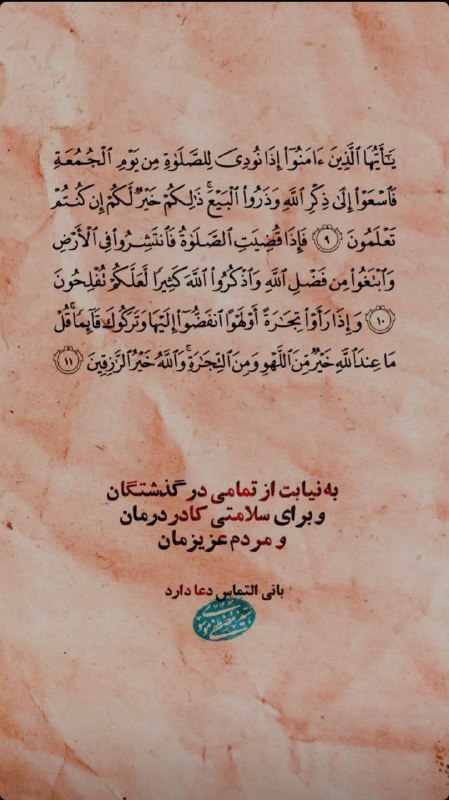 يَـٰٓأَيُّهَا ٱلَّذِينَ ءَامَنُوٓا۟ إِذَا نُودِىَ لِلصَّلَوٰةِ مِن يَوْمِ ٱلْجُمُعَةِ
فَٱسْعَوْا۟ إِلَىٰ ذِكْرِ ٱللَّهِ وَذَرُوا۟ ٱلْبَيْعَ ۚ ذَٰلِكُمْ خَيْرٌ لَّكُمْ إِن كُنتُمْ
تَعْلَمُونَ ٩ فَإِذَا قُضِيَتِ ٱلصَّلَوٰةُ فَٱنتَشِرُوا۟ فِى ٱلْأَرْضِ
وَٱبْتَغُوا۟ مِن فَضْلِ ٱللَّهِ وَٱذْكُرُوا۟ ٱللَّهَ كَثِيرًا لَّعَلَّكُمْ تُفْلِحُونَ
١٠ وَإِذَا رَأَوْا۟ تِجَـٰرَةً أَوْ لَهْوًا ٱنفَضُّوٓا۟ إِلَيْهَا وَتَرَكُوكَ قَآئِمًا ۚ قُلْ
مَا عِندَ ٱللَّهِ خَيْرٌ مِّنَ ٱللَّهْوِ وَمِنَ ٱلتِّجَـٰرَةِ ۚ وَٱللَّهُ خَيْرُ ٱلرَّٰزِقِينَ ١١
به نیابت از تمامی درگذشتگان
و برای سلامتی کادر درمان
و مردم عزیزمان
بانی التماس دعا دارد